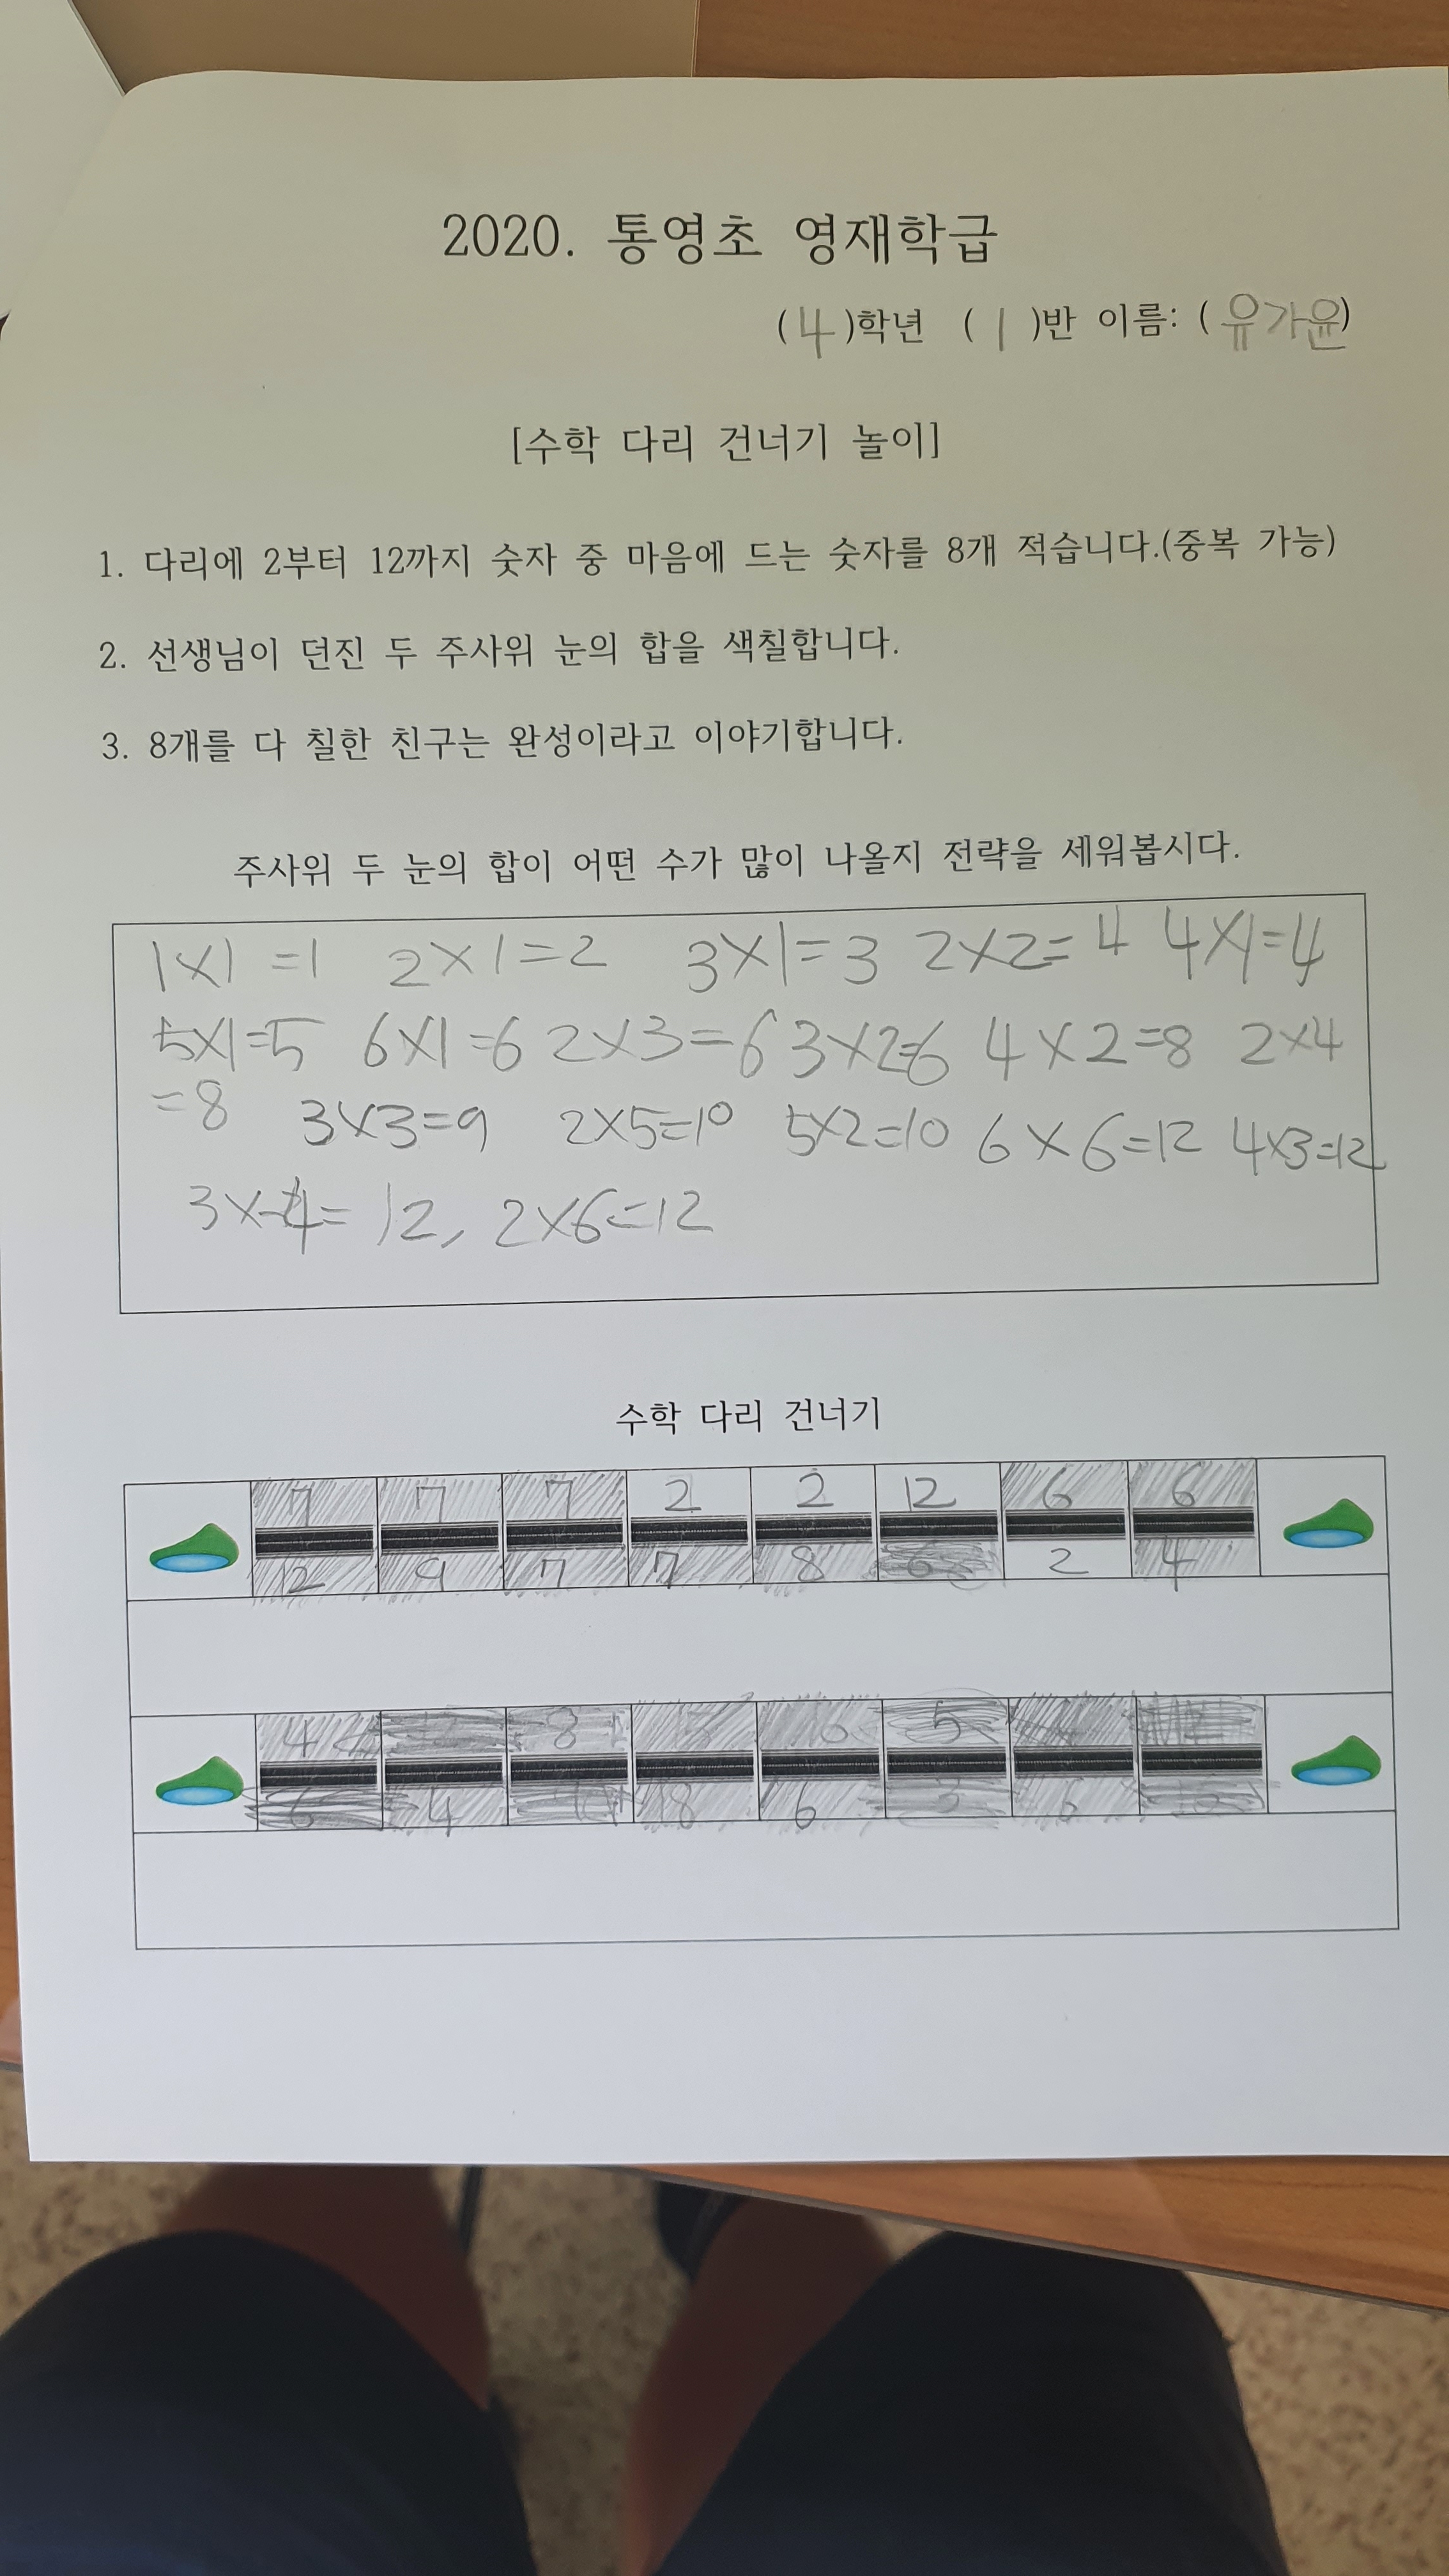 2020. 통영초 영재학급
(4)학년 (1)반 이름: (유가윤)
[수학 다리 건너기 놀이]
1. 다리에 2부터 12까지 숫자 중 마음에 드는 숫자를 8개 적습니다.(중복 가능)
2. 선생님이 던진 두 주사위 눈의 합을 색칠합니다.
3. 8개를 다 칠한 친구는 완성이라고 이야기합니다.
주사위 두 눈의 합이 어떤 수가 많이 나올지 전략을 세워봅시다.
1×1=1 2×1=2 3×1=3 2×2=4 4×1=4
5×1=5 6×1=6 2×3=6 3×2=6 4×2=8 2×4
=8 3×3=9 2×5=10 5×2=10 6×6=12 4×3=12
3×4=12, 2×6=12
수학 다리 건너기
7 7 7 2 2 12 6 6
12 9 7 7 8 6 2 4
4 8 5
6 4 8 6 6